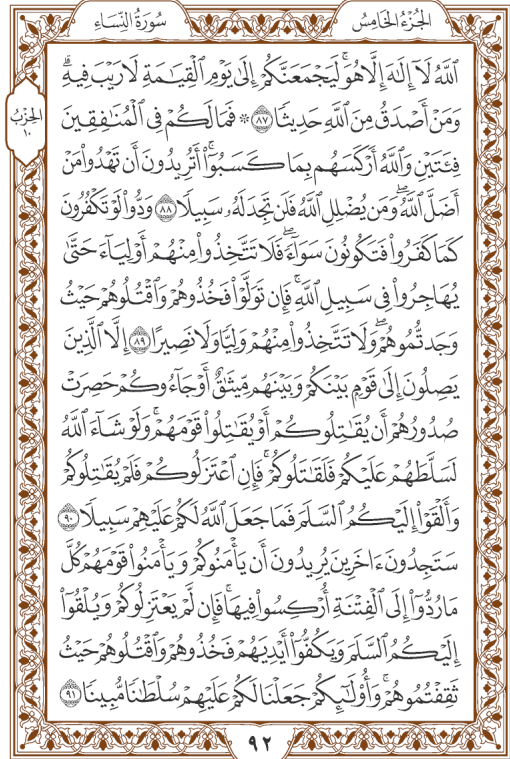 الجُزْءُ الخَامِسُ
سُورَةُ النِّسَاءِ
ٱللَّهُ لَآ إِلَٰهَ إِلَّا هُوَۚ لَيَجْمَعَنَّكُمْ إِلَىٰ يَوْمِ ٱلْقِيَٰمَةِ لَا رَيْبَ فِيهِۗ
وَمَنْ أَصْدَقُ مِنَ ٱللَّهِ حَدِيثٗا ٨٧ ۞ فَمَا لَكُمْ فِي ٱلْمُنَٰفِقِينَ
فِئَتَيْنِ وَٱللَّهُ أَرْكَسَهُم بِمَا كَسَبُوٓا۟ۚ أَتُرِيدُونَ أَن تَهْدُوا۟ مَنْ
أَضَلَّ ٱللَّهُۖ وَمَن يُضْلِلِ ٱللَّهُ فَلَن تَجِدَ لَهُۥ سَبِيلٗا ٨٨ وَدُّوا۟ لَوْ تَكْفُرُونَ
كَمَا كَفَرُوا۟ فَتَكُونُونَ سَوَآءٗۖ فَلَا تَتَّخِذُوا۟ مِنْهُمْ أَوْلِيَآءَ حَتَّىٰ
يُهَاجِرُوا۟ فِي سَبِيلِ ٱللَّهِۚ فَإِن تَوَلَّوْا۟ فَخُذُوهُمْ وَٱقْتُلُوهُمْ حَيْثُ
وَجَدتُّمُوهُمْۖ وَلَا تَتَّخِذُوا۟ مِنْهُمْ وَلِيّٗا وَلَا نَصِيرًا ٨٩ إِلَّا ٱلَّذِينَ
يَصِلُونَ إِلَىٰ قَوْمِۭ بَيْنَكُمْ وَبَيْنَهُم مِّيثَٰقٌ أَوْ جَآءُوكُمْ حَصِرَتْ
صُدُورُهُمْ أَن يُقَٰتِلُوكُمْ أَوْ يُقَٰتِلُوا۟ قَوْمَهُمْۚ وَلَوْ شَآءَ ٱللَّهُ
لَسَلَّطَهُمْ عَلَيْكُمْ فَلَقَٰتَلُوكُمْۚ فَإِنِ ٱعْتَزَلُوكُمْ فَلَمْ يُقَٰتِلُوكُمْ
وَأَلْقَوْا۟ إِلَيْكُمُ ٱلسَّلَمَ فَمَا جَعَلَ ٱللَّهُ لَكُمْ عَلَيْهِمْ سَبِيلٗا ٩٠
سَتَجِدُونَ ءَاخَرِينَ يُرِيدُونَ أَن يَأْمَنُوكُمْ وَيَأْمَنُوا۟ قَوْمَهُمْ كُلَّ
مَا رُدُّوٓا۟ إِلَى ٱلْفِتْنَةِ أُرْكِسُوا۟ فِيهَاۚ فَإِن لَّمْ يَعْتَزِلُوكُمْ وَيُلْقُوٓا۟
إِلَيْكُمُ ٱلسَّلَمَ وَيَكُفُّوٓا۟ أَيْدِيَهُمْ فَخُذُوهُمْ وَٱقْتُلُوهُمْ حَيْثُ
ثَقِفْتُمُوهُمْۚ وَأُو۟لَٰٓئِكُمْ جَعَلْنَا لَكُمْ عَلَيْهِمْ سُلْطَٰنٗا مُّبِينٗا ٩١
الحِزْبُ
١٠
٩٢